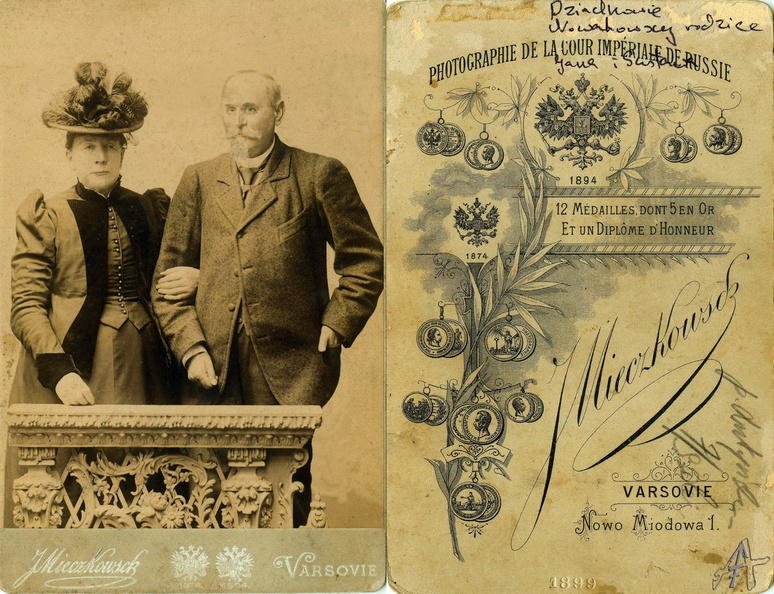 J. Mieczkowsck
VARSOVIE
Dziadkowie
Nowakowscy rodzice
PHOTOGRAPHIE DE LA COUR IMPÉRIALE DE RUSSIE
Jana i
1894
12 MÉDAILLES, DONT 5 EN OR
ET UN DIPLÔME D'HONNEUR
1874
J. Mieczkowsck
VARSOVIE
Nowo Miodowa 1.
1899